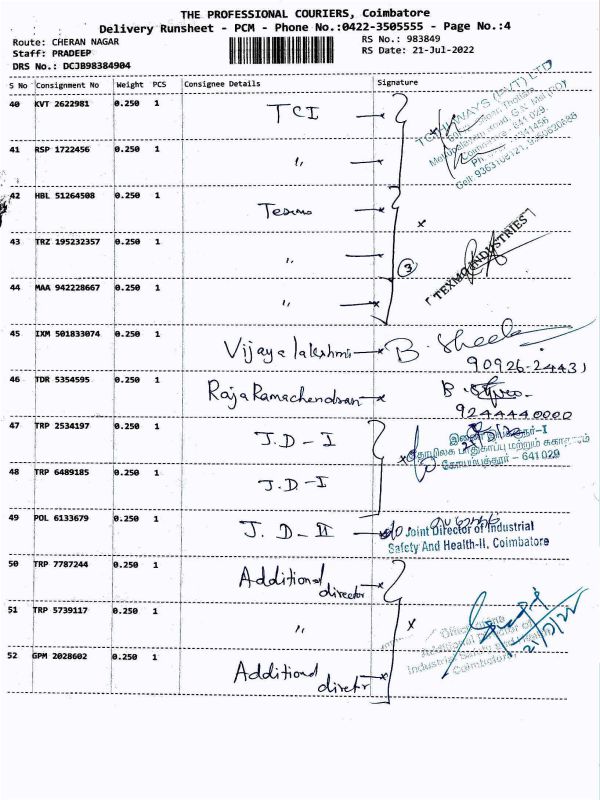 THE PROFESSIONAL COURIERS, Coimbatore
Delivery Runsheet - PCM - Phone No.:0422-3505555 - Page No.:4
Route: CHERAN NAGAR
Staff: PRADEEP
DRS No.: DCJB98384904
RS No.: 983849
RS Date: 21-Jul-2022
S No Consignment No Weight PCS Consignee Details Signature
40 KVT 2622981 0.250 1 TCI
41 RSP 1722456 0.250 1 "
42 HBL 51264508 0.250 1 Texmo
43 TRZ 195232357 0.250 1 "
3
TEXMO INDUSTRIES
44 MAA 942228667 0.250 1 "
45 IXM 501833074 0.250 1 Vijayalakshmi B. Sheela
90926-24431
46 TDR 5354595 0.250 1 Raja Ramachendran B.
9244440000
47 TRP 2534197 0.250 1 J.D-I
தொழிலக பாதுகாப்பு மற்றும் சுகாதாரம்
கோயம்புத்தூர் - 641 029
48 TRP 6489185 0.250 1 J.D-I
49 POL 6133679 0.250 1 J.D-II
Joint Director of Industrial
Safety And Health-II, Coimbatore
50 TRP 7787244 0.250 1 Additional
director
51 TRP 5739117 0.250 1 "
Additional Director of
Coimbatore
21/7/22
52 GPM 2028602 0.250 1 Additional